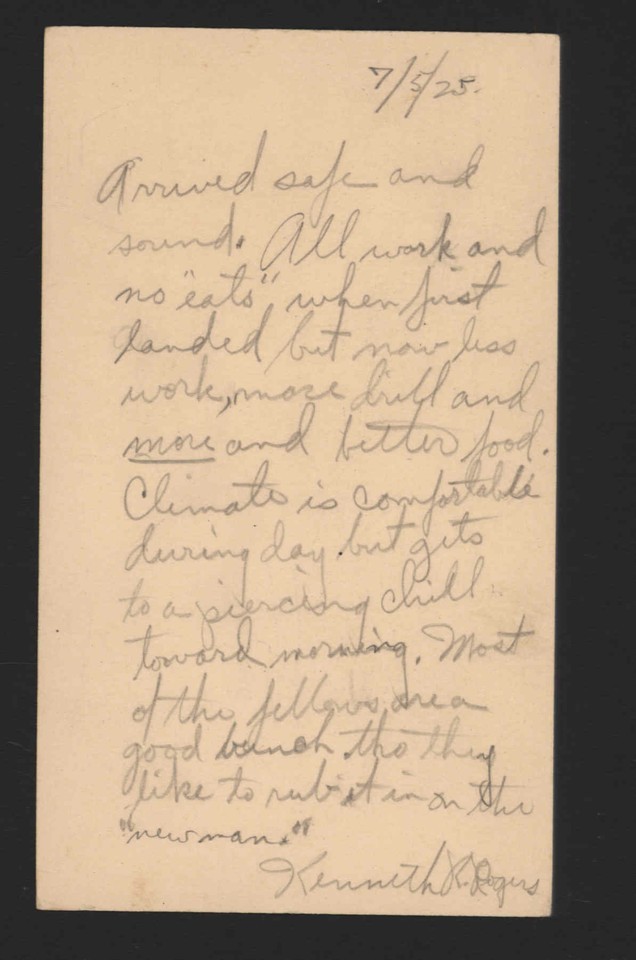 7/5/28.
Arrived safe and
sound. All work and
no "eats" when first
landed but now less
work, more drill and
more and better food.
Climate is comfortable
during day but gets
to a piercing chill
toward morning. Most
of the fellows are a
good bunch tho they
like to rub it in on the
"new man."
Kenneth K. Rogers